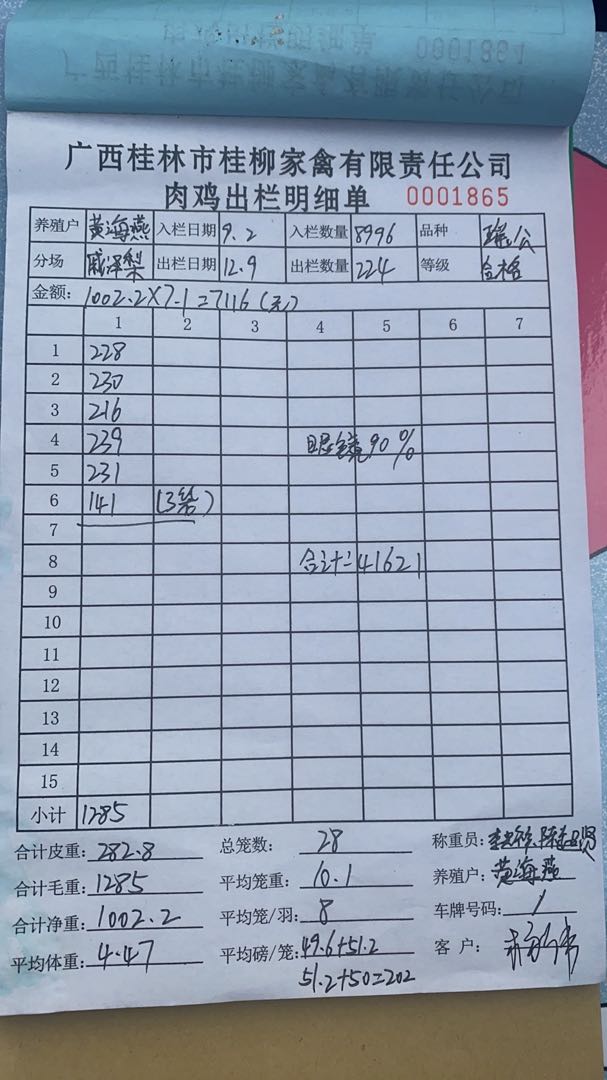 0001864
广西桂林市桂柳家禽有限责任公司
肉鸡出栏明细单 0001865
养殖户 黄海燕 入栏日期 9.2 入栏数量 8996 品种 瑶公
分场 出栏日期 12.9 出栏数量 224 等级 合格
金额: 1002.2×7.1=7116(元)
1 2 3 4 5 6 7
1 228
2 230
3 216
4 239 眼镜90%
5 231
6 141 (3笼)
7
8 合计=41621
9
10
11
12
13
14
15
小计 1285
合计皮重: 282.8 总笼数: 28 称重员:
合计毛重: 1285 平均笼重: 10.1 养殖户: 黄海燕
合计净重: 1002.2 平均笼/羽: 8 车牌号码: /
平均体重: 4.47 平均磅/笼: 49.6+51.2 客 户:
51.2+50=202